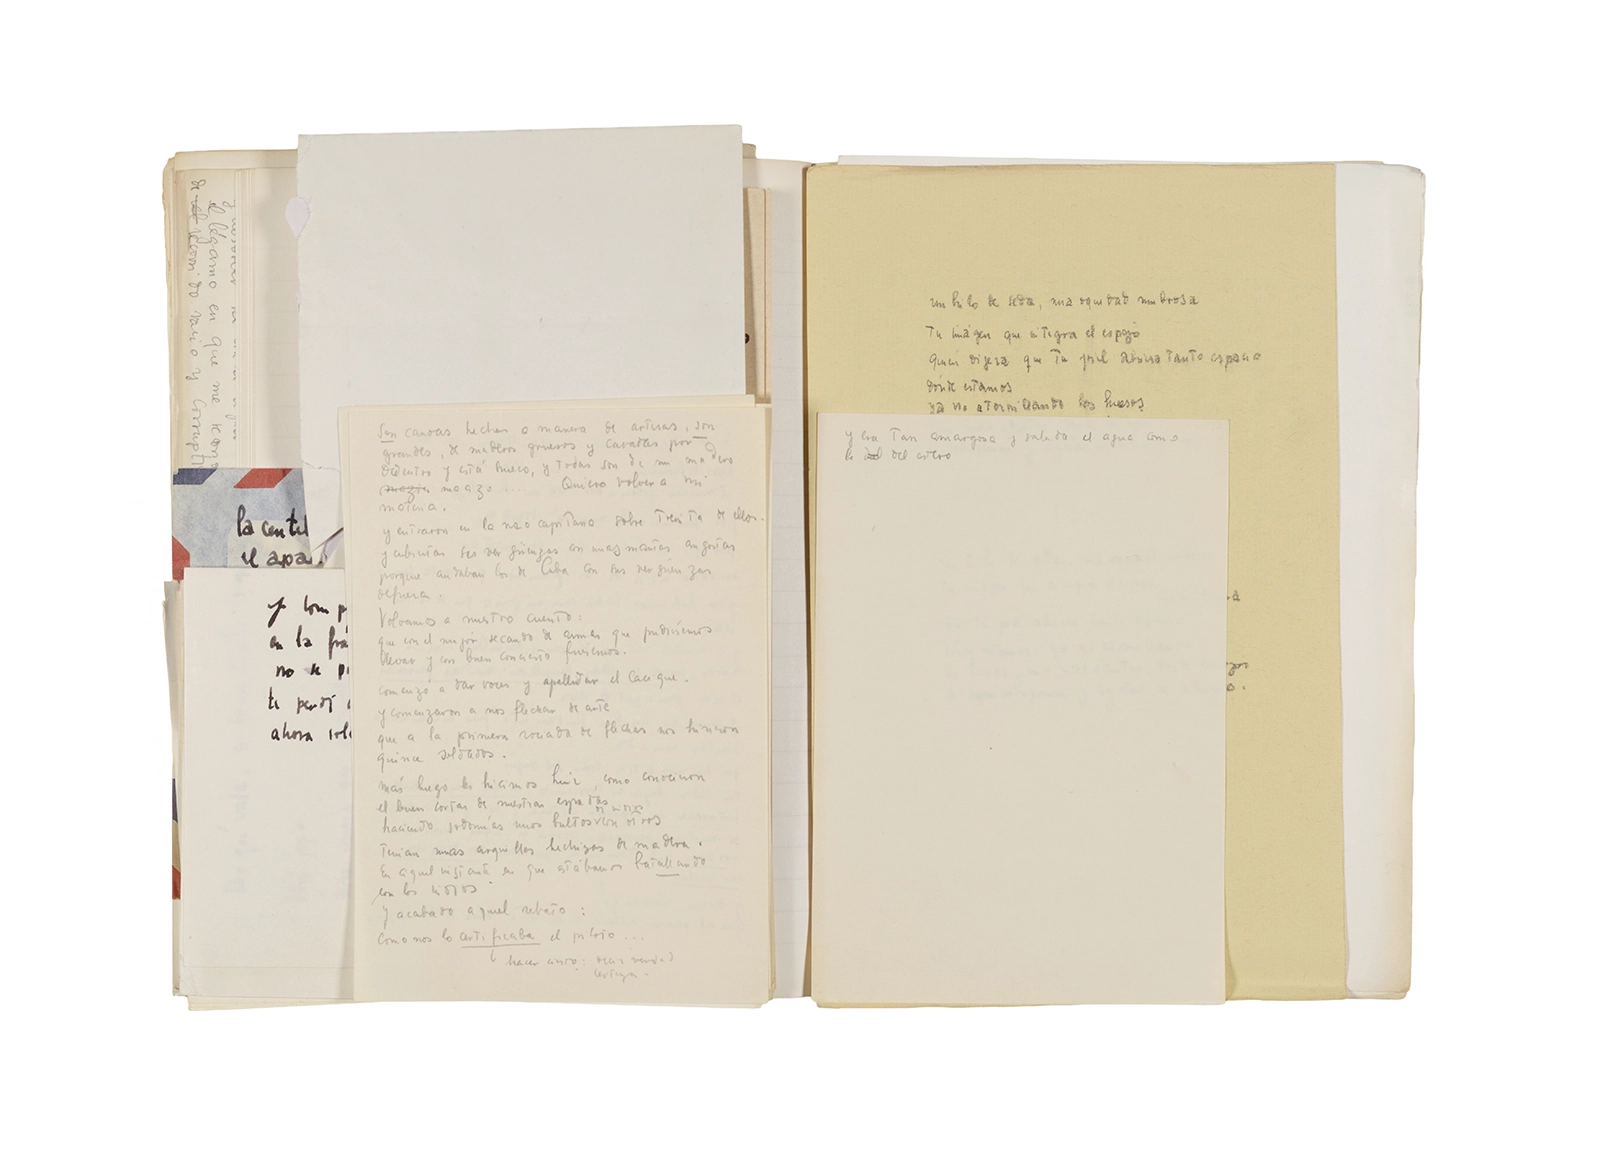 de recomida vacio y corrupti
légamo en que me
la centel
el apa
y tom p
en la frá
no se pi
te perdí
ahora sol
Son canoas hechas a manera de artesas, son
grandes, de maderos gruesos y cavadas por
dedentro y está hueco, y todas son de un madero
maziz maczo .... Quiero volver a mi
materia.
y entraron en la nao capitana sobre treinta de ellos.
y cubiertas sus vergüenzas con unas mantas angostas
porque andaban los de Cuba con sus vergüenzas
defuera.
Volvamos a nuestro cuento:
que con el mejor recaudo de armas que pudiésemos
llevar y con buen concierto fuésemos.
comenzó a dar voces y apellidar el Cacique.
y comenzaron a nos flechar de arte
que a la primera rociada de flechas nos hirieron
quince soldados.
más luego les hicimos huir, como conocieron
el buen cortar de nuestras espadas
de indios
haciendo sodomías unos bultos con otros
Tenían unas arquillas hechizas de madera.
En aquel instante en que estábamos batallando
con los indios
Y acabado aquel rebato:
Como nos lo certificaba el piloto ...
hacer cierto: decir verdad
certeza.
un hilo de seda, una oquedad umbrosa
Tu imágen que integra el espejo
Quién dijera que tu piel abriera tanto espacio
dónde estamos
ya no atornillando los huesos
y era tan amargosa y salada el agua como
la del